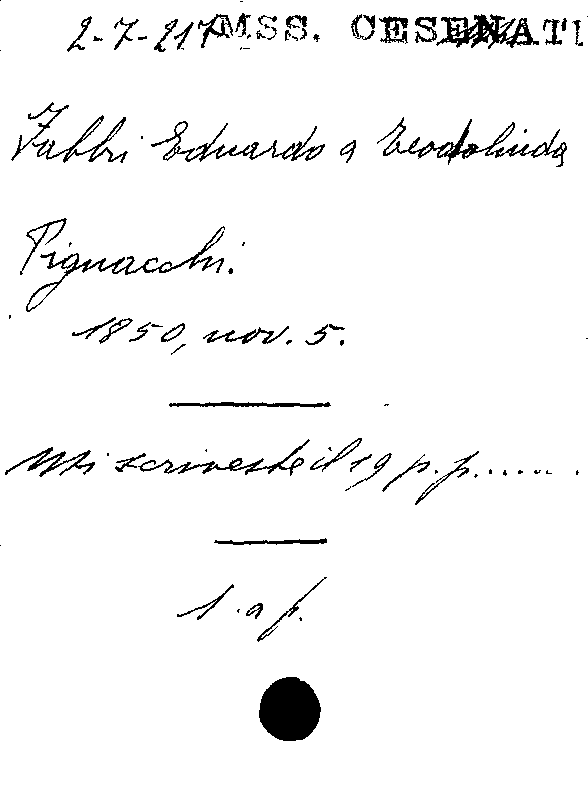 2-7-217 MSS. CESENATI
Fabbri Eduardo a Teodolinda
Pignacchi.
1850, nov. 5.
Mi scriveste il 19 p. p......
1. a f.